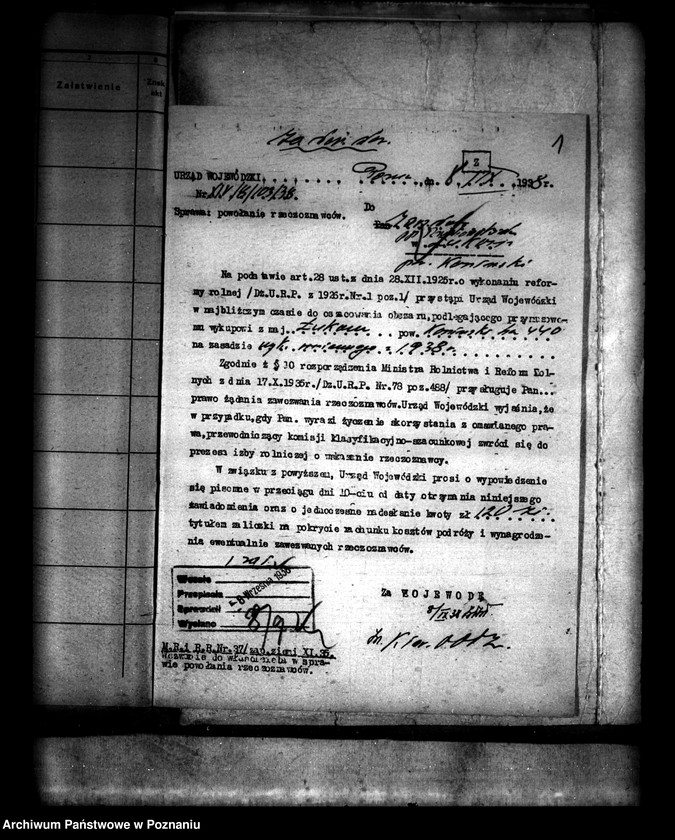 7
8
Załatwienie
Znak
akt
1
Z
URZĄD WOJEWÓDZKI, dn. 8 IX 1938 r.
Nr.
Sprawa: powołanie rzeczoznawców.
Do
w
Na podstawie art.28 ust.z dnia 28.XII.1925r.o wykonaniu refor-
my rolnej /Dz.U.R.P. z 1926r.Nr.1 poz.1/ przystąpi Urząd Wojewódzki
w najbliższym czasie do oszacowania obszaru, podlegającego przymusowe-
mu wykupowi z maj. pow. ha 440
na zasadzie wyk. imiennego z 1938r.
Zgodnie z § 10 rozporządzenia Ministra Rolnictwa i Reform Rol-
nych z dnia 17.X.1935r./Dz.U.R.P. Nr.78 poz.488/ przysługuje Pan...
prawo żądania zawezwania rzeczoznawców.Urząd Wojewódzki wyjaśnia,że
w przypadku,gdy Pan. wyrazi życzenie skorzystania z omawianego pra-
wa,przewodniczący komisji klasyfikacyjno-szacunkowej zwróci się do
prezesa izby rolniczej o wskazanie rzeczoznawcy.
W związku z powyższem, Urząd Wojewódzki prosi o wypowiedzenie
się pisemne w przeciągu dni 10-ciu od daty otrzymania niniejszego
zawiadomienia oraz o jednoczesne nadesłanie kwoty zł 120
tytułem zaliczki na pokrycie rachunku kosztów podróży i wynagrodze-
nia ewentualnie zawezwanych rzeczoznawców.
Przepisano
Sprawdził
Wysłano
Za WOJEWODĘ
M.R.i R.R.Nr.37/
Wezwanie do właściciela w spra-
wie powołania rzeczoznawców.
Archiwum Państwowe w Poznaniu